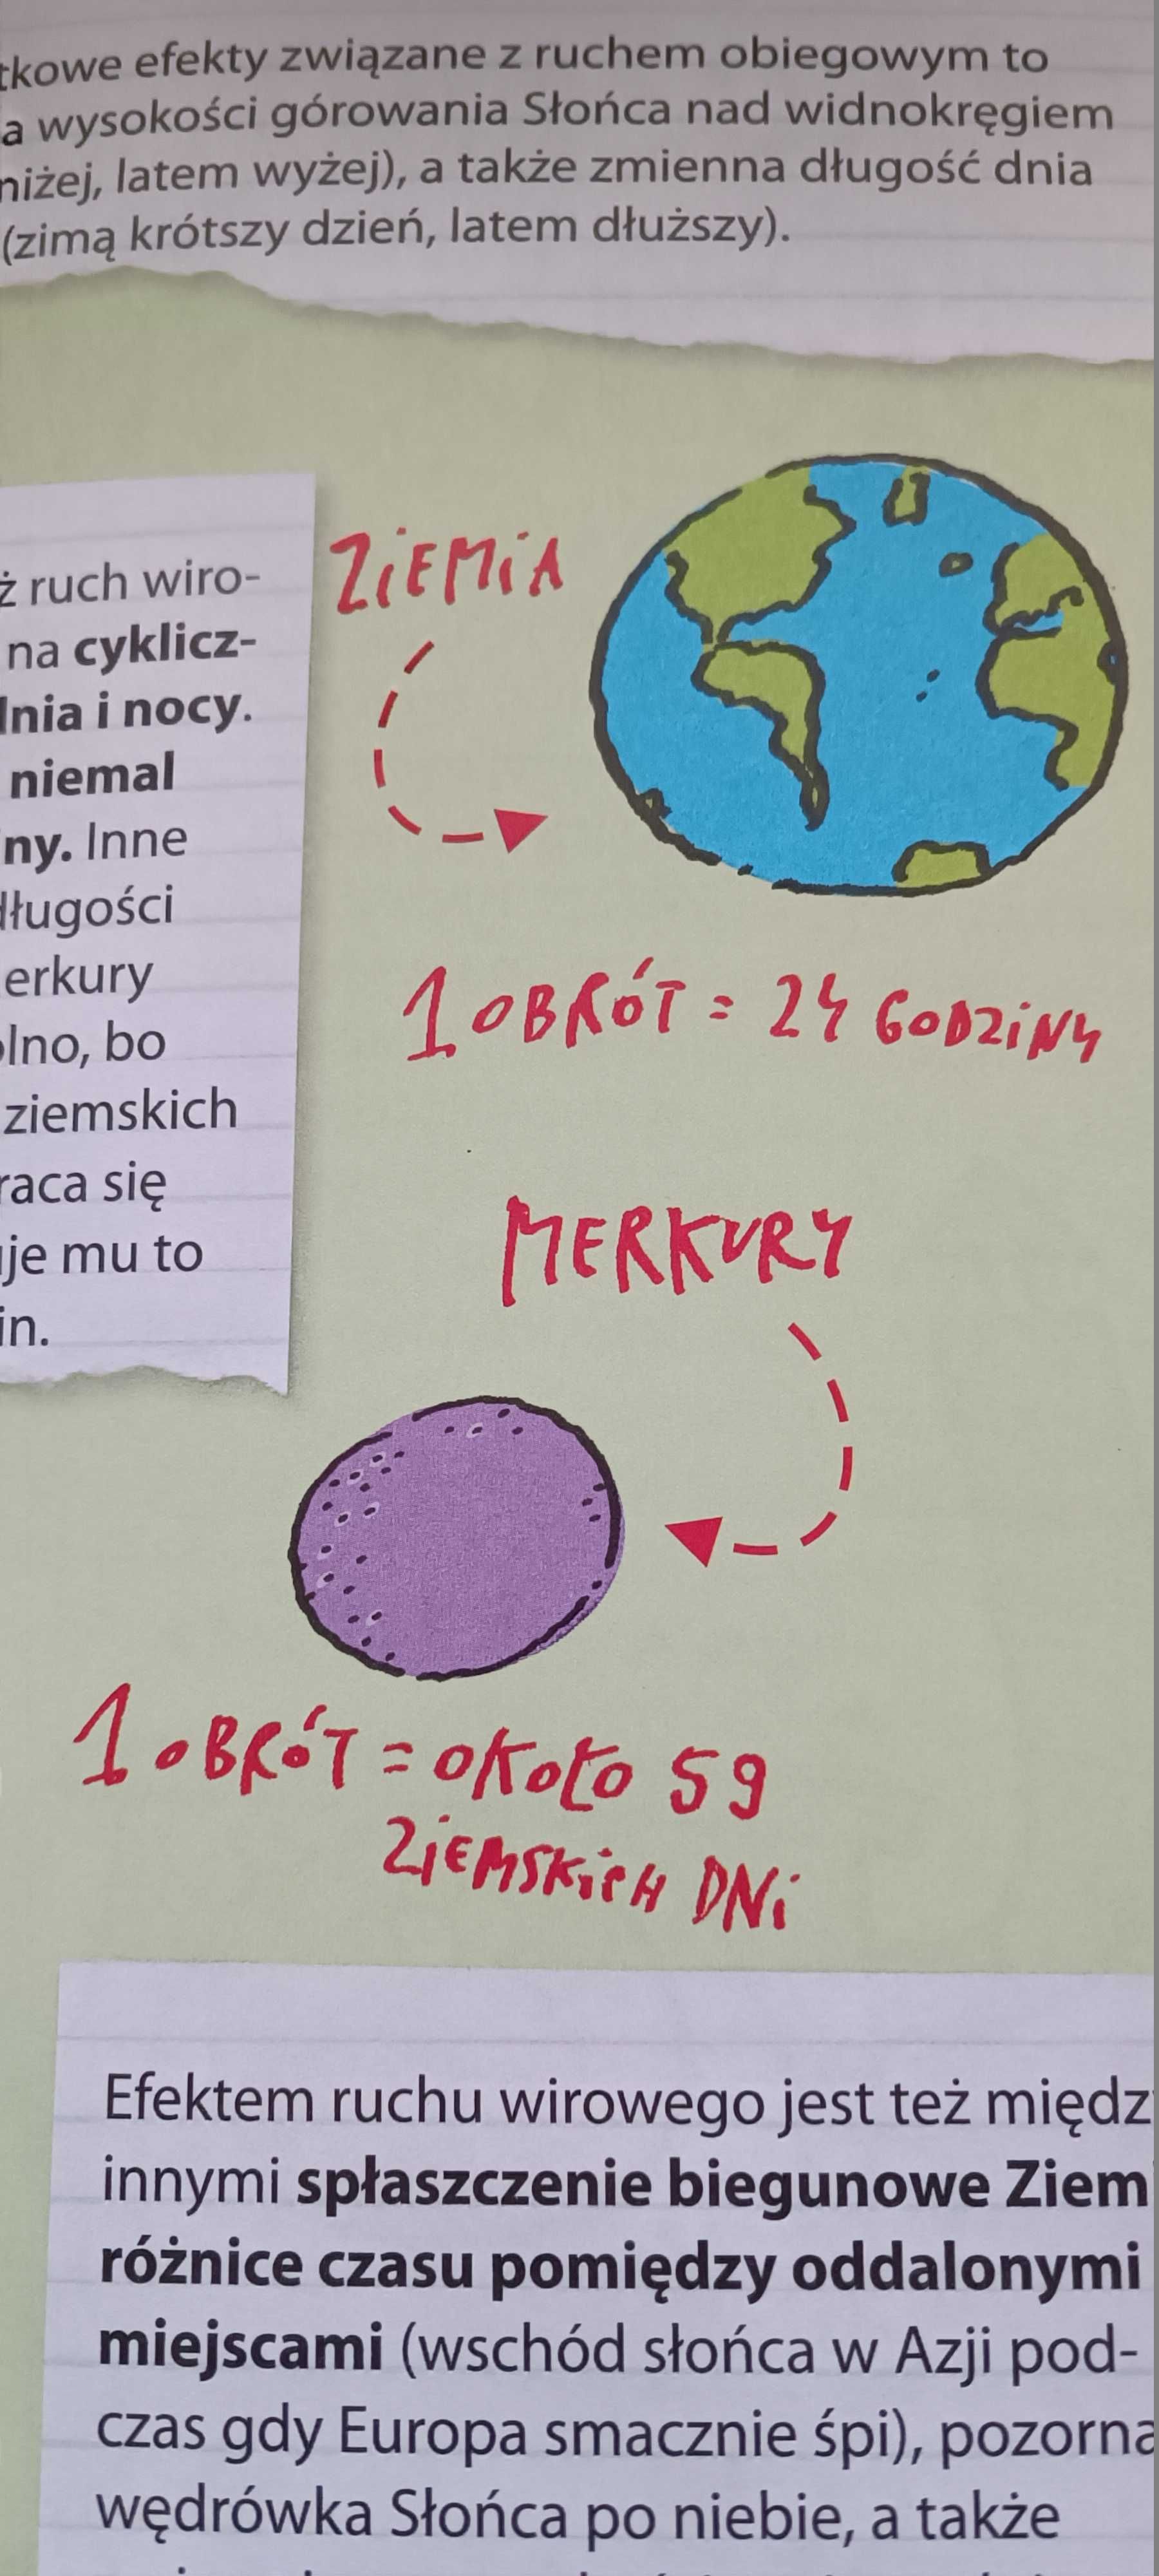 efekty związane z ruchem obiegowym to
a wysokości górowania Słońca nad widnokręgiem
niżej, latem wyżej), a także zmienna długość dnia
(zimą krótszy dzień, latem dłuższy).
ż ruch wiro-
na cyklicz-
dnia i nocy.
niemal
ny. Inne
długości
erkury
olno, bo
ziemskich
raca się
uje mu to
in.
ZIEMIA
1 OBRÓT = 24 GODZINY
MERKURY
1 OBRÓT = OKOŁO 59
ZIEMSKICH DNI
Efektem ruchu wirowego jest też międz
innymi spłaszczenie biegunowe Ziem
różnice czasu pomiędzy oddalonymi
miejscami (wschód słońca w Azji pod-
czas gdy Europa smacznie śpi), pozorna
wędrówka Słońca po niebie, a także